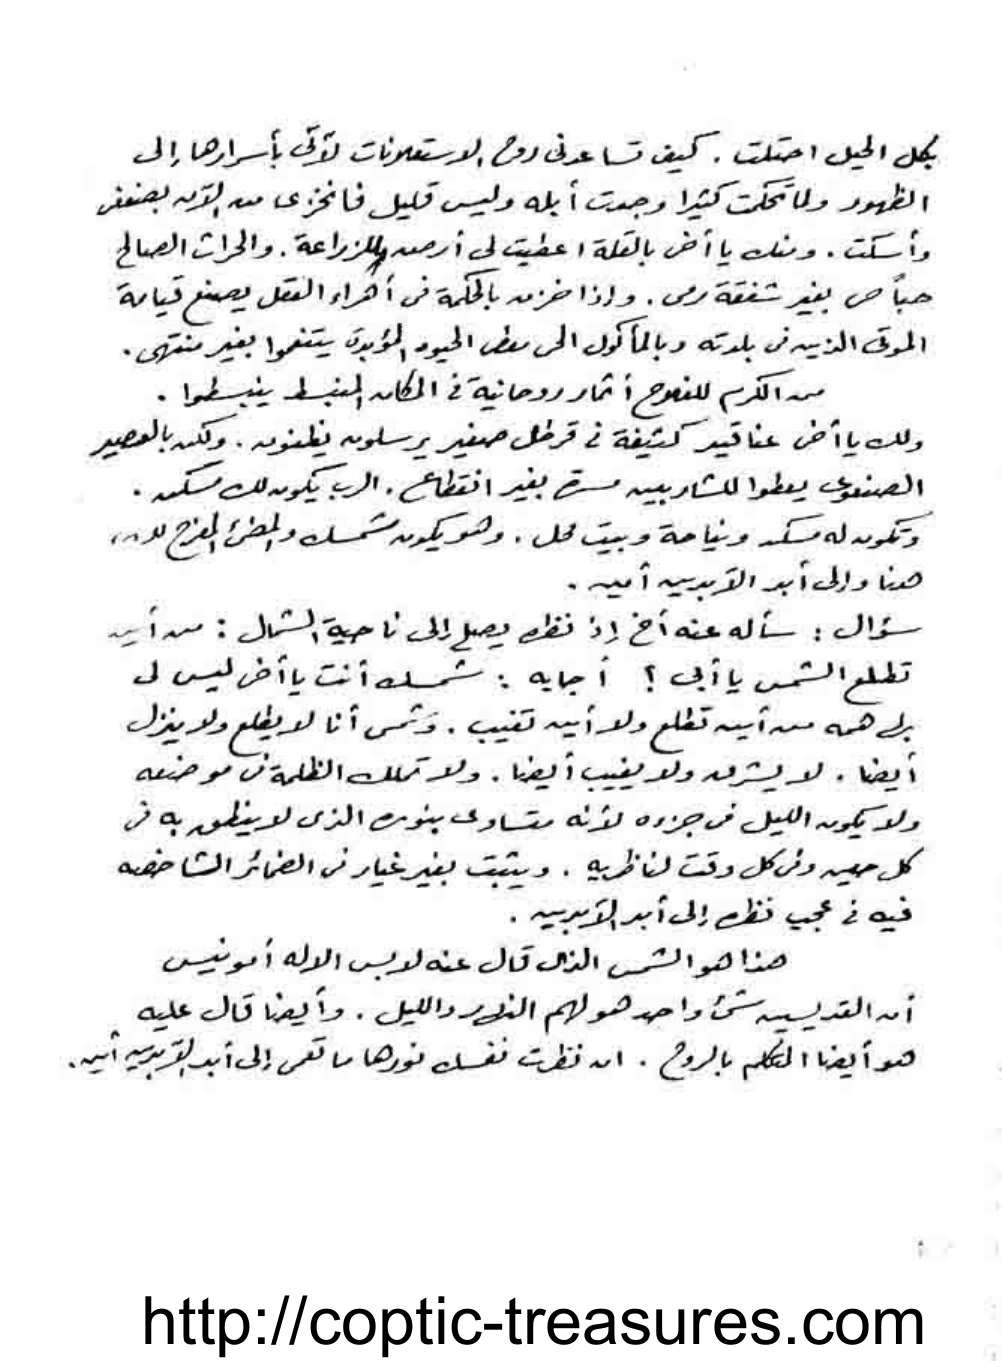 بكل الحيل احتلت . كيف تساعدنى روح الاستعلانات لآتى بأسرارها إلى
الظهور ولما تحكمت كثيرا وجدت أبله وليس قليل فانخزى من الآن بضعفى
وأسكت . ومنك يا أخى بالقلة اعطيت لى أرض للزراعة . والحراث الصالح
حباً ص بغير شفقة رمى . وإذا خزن بالحكمة فى أهراء العقل يصنع قيامة
الموتى الذين فى بلدته وبالمأكول الحى معطى الحيوة المؤبدة يتنعموا بغير منتهى .
من الكرم للفلاح أثمار روحانية فى المكان المنبسط ينبسطوا .
ولك يا أخى عناقيد كثيفة فى قرطل صغير يرسلون يظنون . ولكن بالعصير
المصنوع يعطوا للشاربين مسرة بغير انقطاع . الرب يكون لك مسكن .
وتكون له مسكن ونياحة وبيت محل . وهو يكون شمسك والمضئ المفرح لك ،
هنا وإلى أبد الآبدين أمين .
سؤال : سأله عنه أخ إذ نظره يصلى إلى ناحية الشمال : من أين
تطلع الشمس يا أبى ؟ أجابه : شمسك أنت يا أخى ليس لى
بل همه من أين تطلع ولا أين تغيب . وشمسى أنا لا يطلع ولا ينزل
أيضا . لا يشرق ولا يغيب أيضا . ولا تملك الظلمة فى موضعه
ولا يكون الليل فى جزوه لأنه متساوى بنوره الذى لا ينطق به فى
كل حين وفى كل وقت لناظريه . ويثبت بغير غيار فى الضمائر الشاخصه
فيه فى عجب نظره إلى أبد الآبدين .
هذا هو الشمس الذى قال عنه لابس الاله أمونيس
أن القديسين شئ واحد هو لهم النهار والليل . وأيضا قال عليه
هو أيضا المتكلم بالروح . ان نظرت نفسك نورها ما تعمى إلى أبد الآبدين أمين .
http://coptic-treasures.com